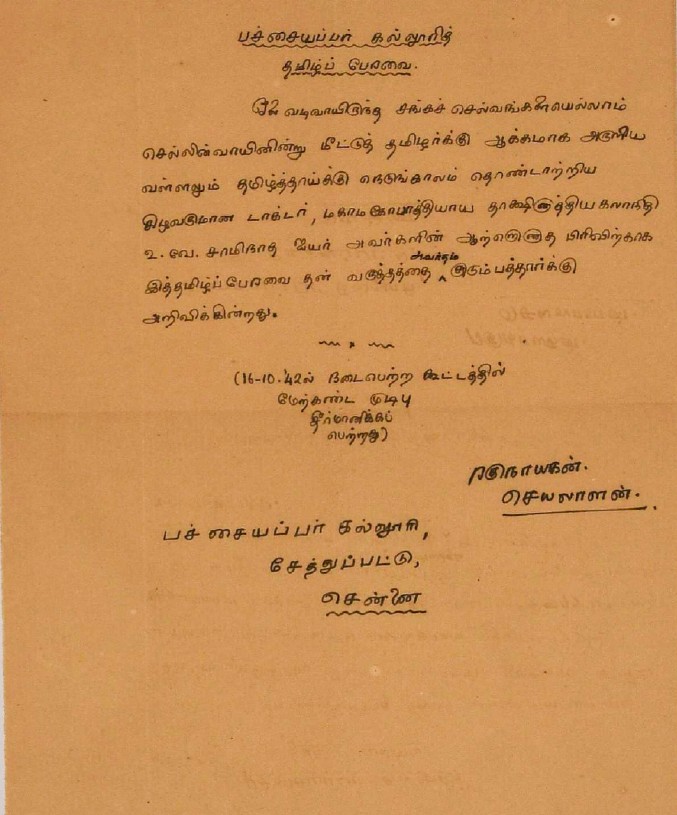 பச்சையப்பர் கல்லூரித்
தமிழ்ப் பேரவை.
ஏடு வடிவாயிருந்த சங்கச் செல்வங்களையெல்லாம்
செல்லின்வாயினின்று மீட்டுத் தமிழர்க்கு ஆக்கமாக அருளிய
வள்ளலும் தமிழ்த்தாய்க்கு நெடுங்காலம் தொண்டாற்றிய
கிழவருமான டாக்டர், மகாமகோபாத்தியாய தாக்ஷிணாத்திய கலாநிதி
உ. வே. சாமிநாத ஐயர் அவர்களின் ஆற்றொணாத பிரிவிற்காக
இத்தமிழ்ப்பேரவை தன் வருத்தத்தை அவர்தம் குடும்பத்தார்க்கு
அறிவிக்கின்றது.
(16-10-'42ல் நடைபெற்ற கூட்டத்தில்
மேற்கண்ட முடிபு
தீர்மானிக்கப்
பெற்றது)
செயலாளன்.
பச்சையப்பர் கல்லூரி,
சேத்துப்பட்டு,
சென்னை